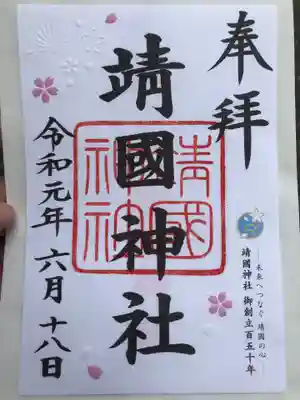 奉拝
靖國神社
靖國神社
未来へつなぐ 靖國の心
靖國神社 御創立百五十年
令和元年 六月 十八日